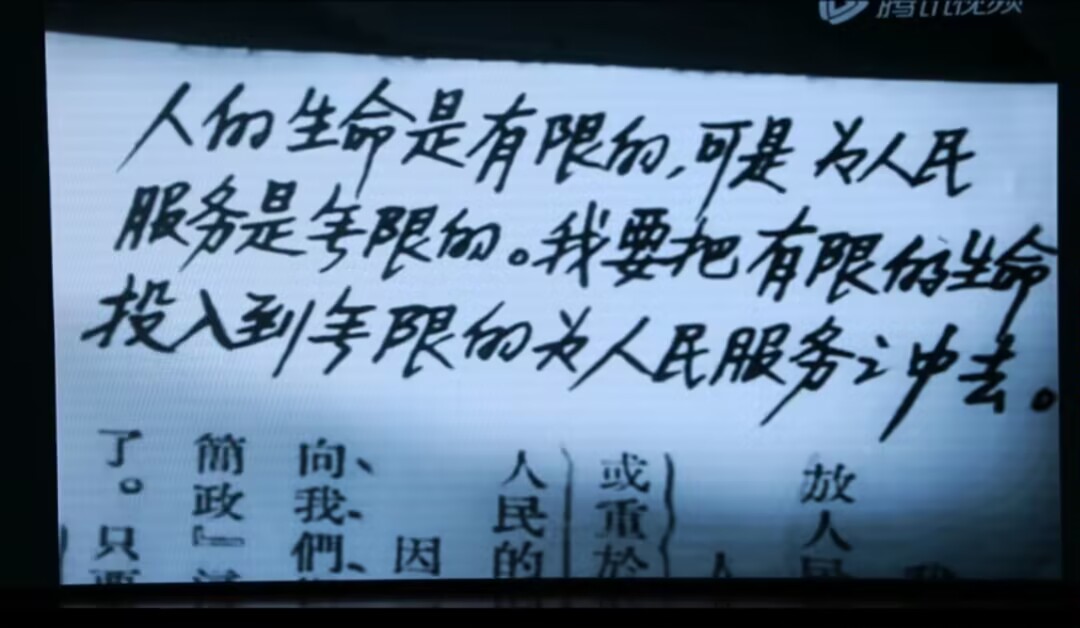 腾讯视频
人的生命是有限的,可是为人民
服务是无限的。我要把有限的生命
投入到无限的为人民服务之中去。
放人民
人
或重於
人民的
因
向、我、們、
簡政』
了。只要